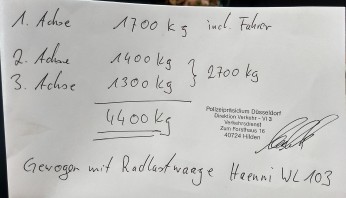 1. Achse 1700 kg incl. Fahrer
2. Achse 1400 kg } 2700 kg
3. Achse 1300 kg
4400 kg
Polizeipräsidium Düsseldorf
Direktion Verkehr - VI 3
Verkehrsdienst
Zum Forsthaus 16
40724 Hilden
Gewogen mit Radlastwaage Haenni WL 103